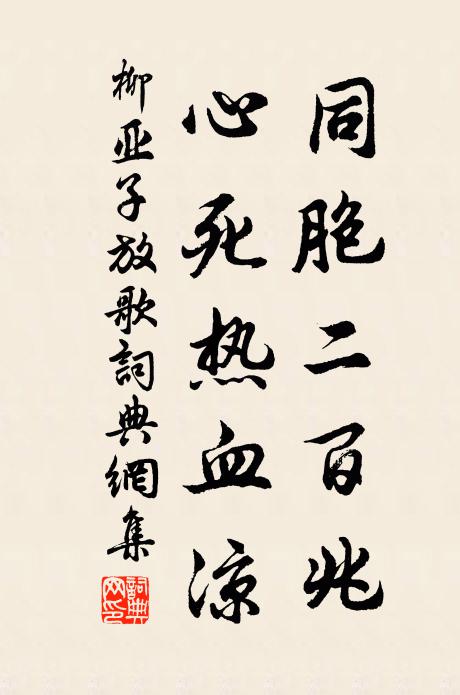 同胞二百兆
心死热血凉
柳亚子放歌詞典網集
詞典网印